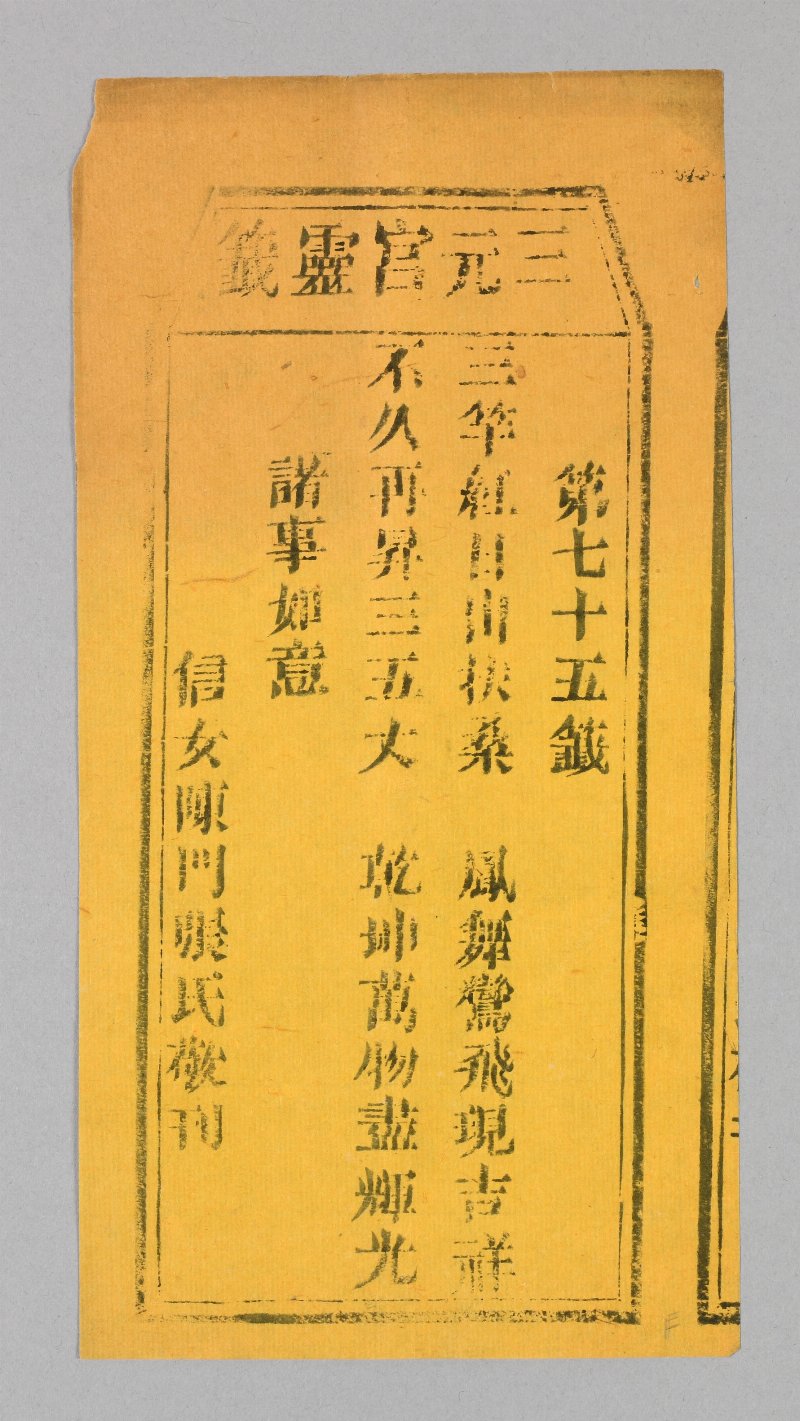 三元宮靈籤
第七十五籤
三竿紅日出扶桑　鳳舞鸞飛現吉祥
不久再昇三五丈　乾坤萬物盡輝光
諸事如意
信女陳門張氏敬刊